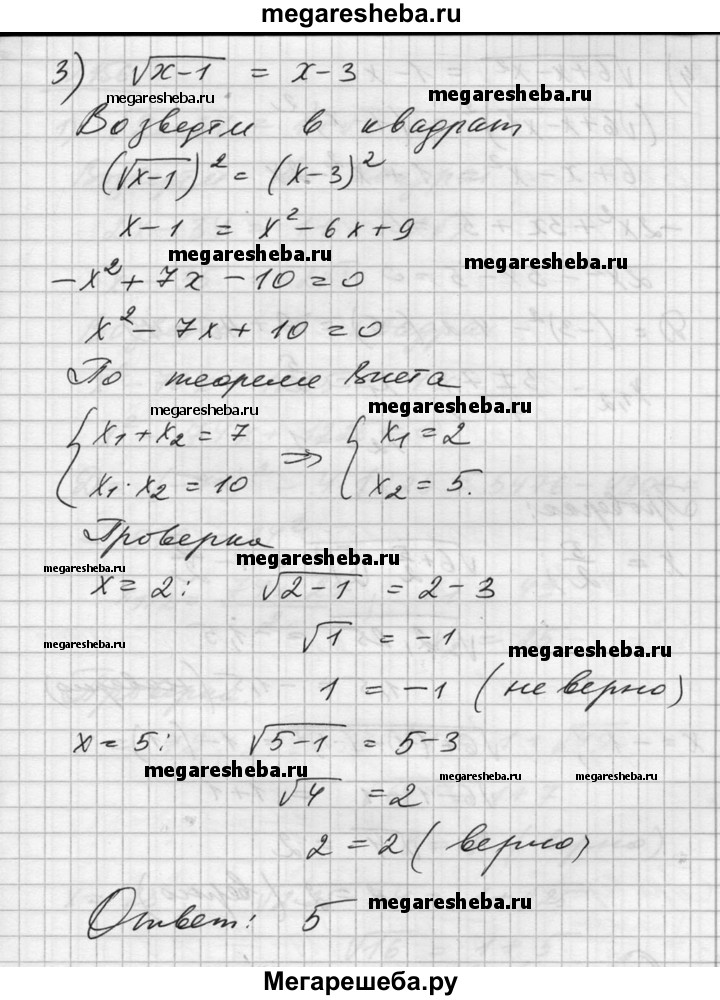 megaresheba.ru
3) √(x-1) = x-3
megaresheba.ru megaresheba.ru
Возведём в квадрат
(√(x-1))² = (x-3)²
x-1 = x²-6x+9
megaresheba.ru megaresheba.ru
-x²+7x-10=0
x²-7x+10=0
По теореме Виета
megaresheba.ru megaresheba.ru
{ x₁+x₂=7 ⇒ { x₁=2
x₁·x₂=10 x₂=5.
Проверка
megaresheba.ru megaresheba.ru
x=2: √(2-1) = 2-3
megaresheba.ru √1 = -1 megaresheba.ru
1 = -1 (не верно)
x=5: √(5-1) = 5-3
megaresheba.ru megaresheba.ru megaresheba.ru
√4 = 2
2=2 (верно)
Ответ: 5 megaresheba.ru
Мегарешеба.ру